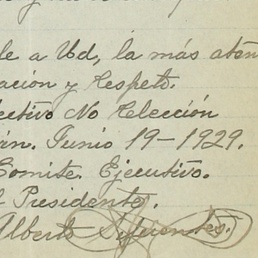 le a Ud, la más aten
ación y respeto.
ectivo No Relección
án. Junio 19-1929.
Comite. Ejecutivo.
l Presidente.
Alberto Sifuentes.